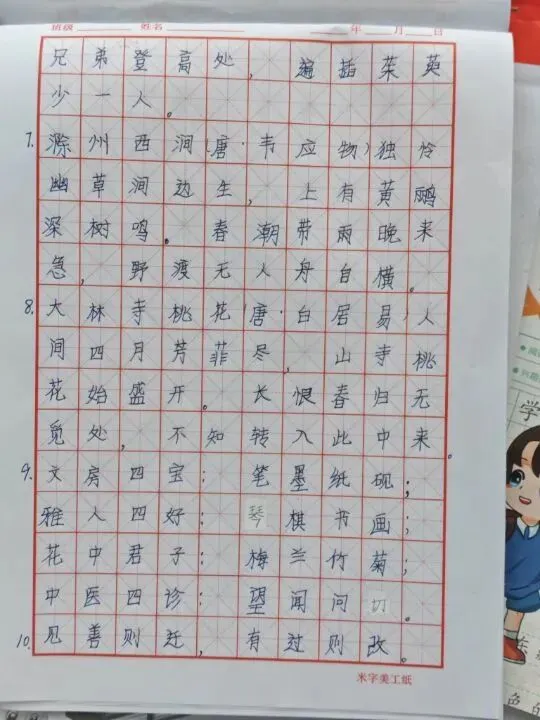 班级 姓名 年 月 日
兄弟登高处，遍插茱萸
少一人。
7. 滁州西涧(唐·韦应物)独怜
幽草涧边生，上有黄鹂
深树鸣。春潮带雨晚来
急，野渡无人舟自横。
8. 大林寺桃花(唐·白居易)人
间四月芳菲尽，山寺桃
花始盛开。长恨春归无
觅处，不知转入此中来。
9. 文房四宝：笔墨纸砚；
雅人四好：琴棋书画；
花中君子：梅兰竹菊；
中医四诊：望闻问切。
10. 见善则迁，有过则改。
米字美工纸
学
色的